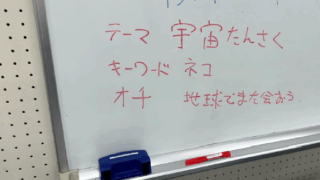 テーマ 宇宙たんさく
キーワード ネコ
オチ 地球でまた会おう